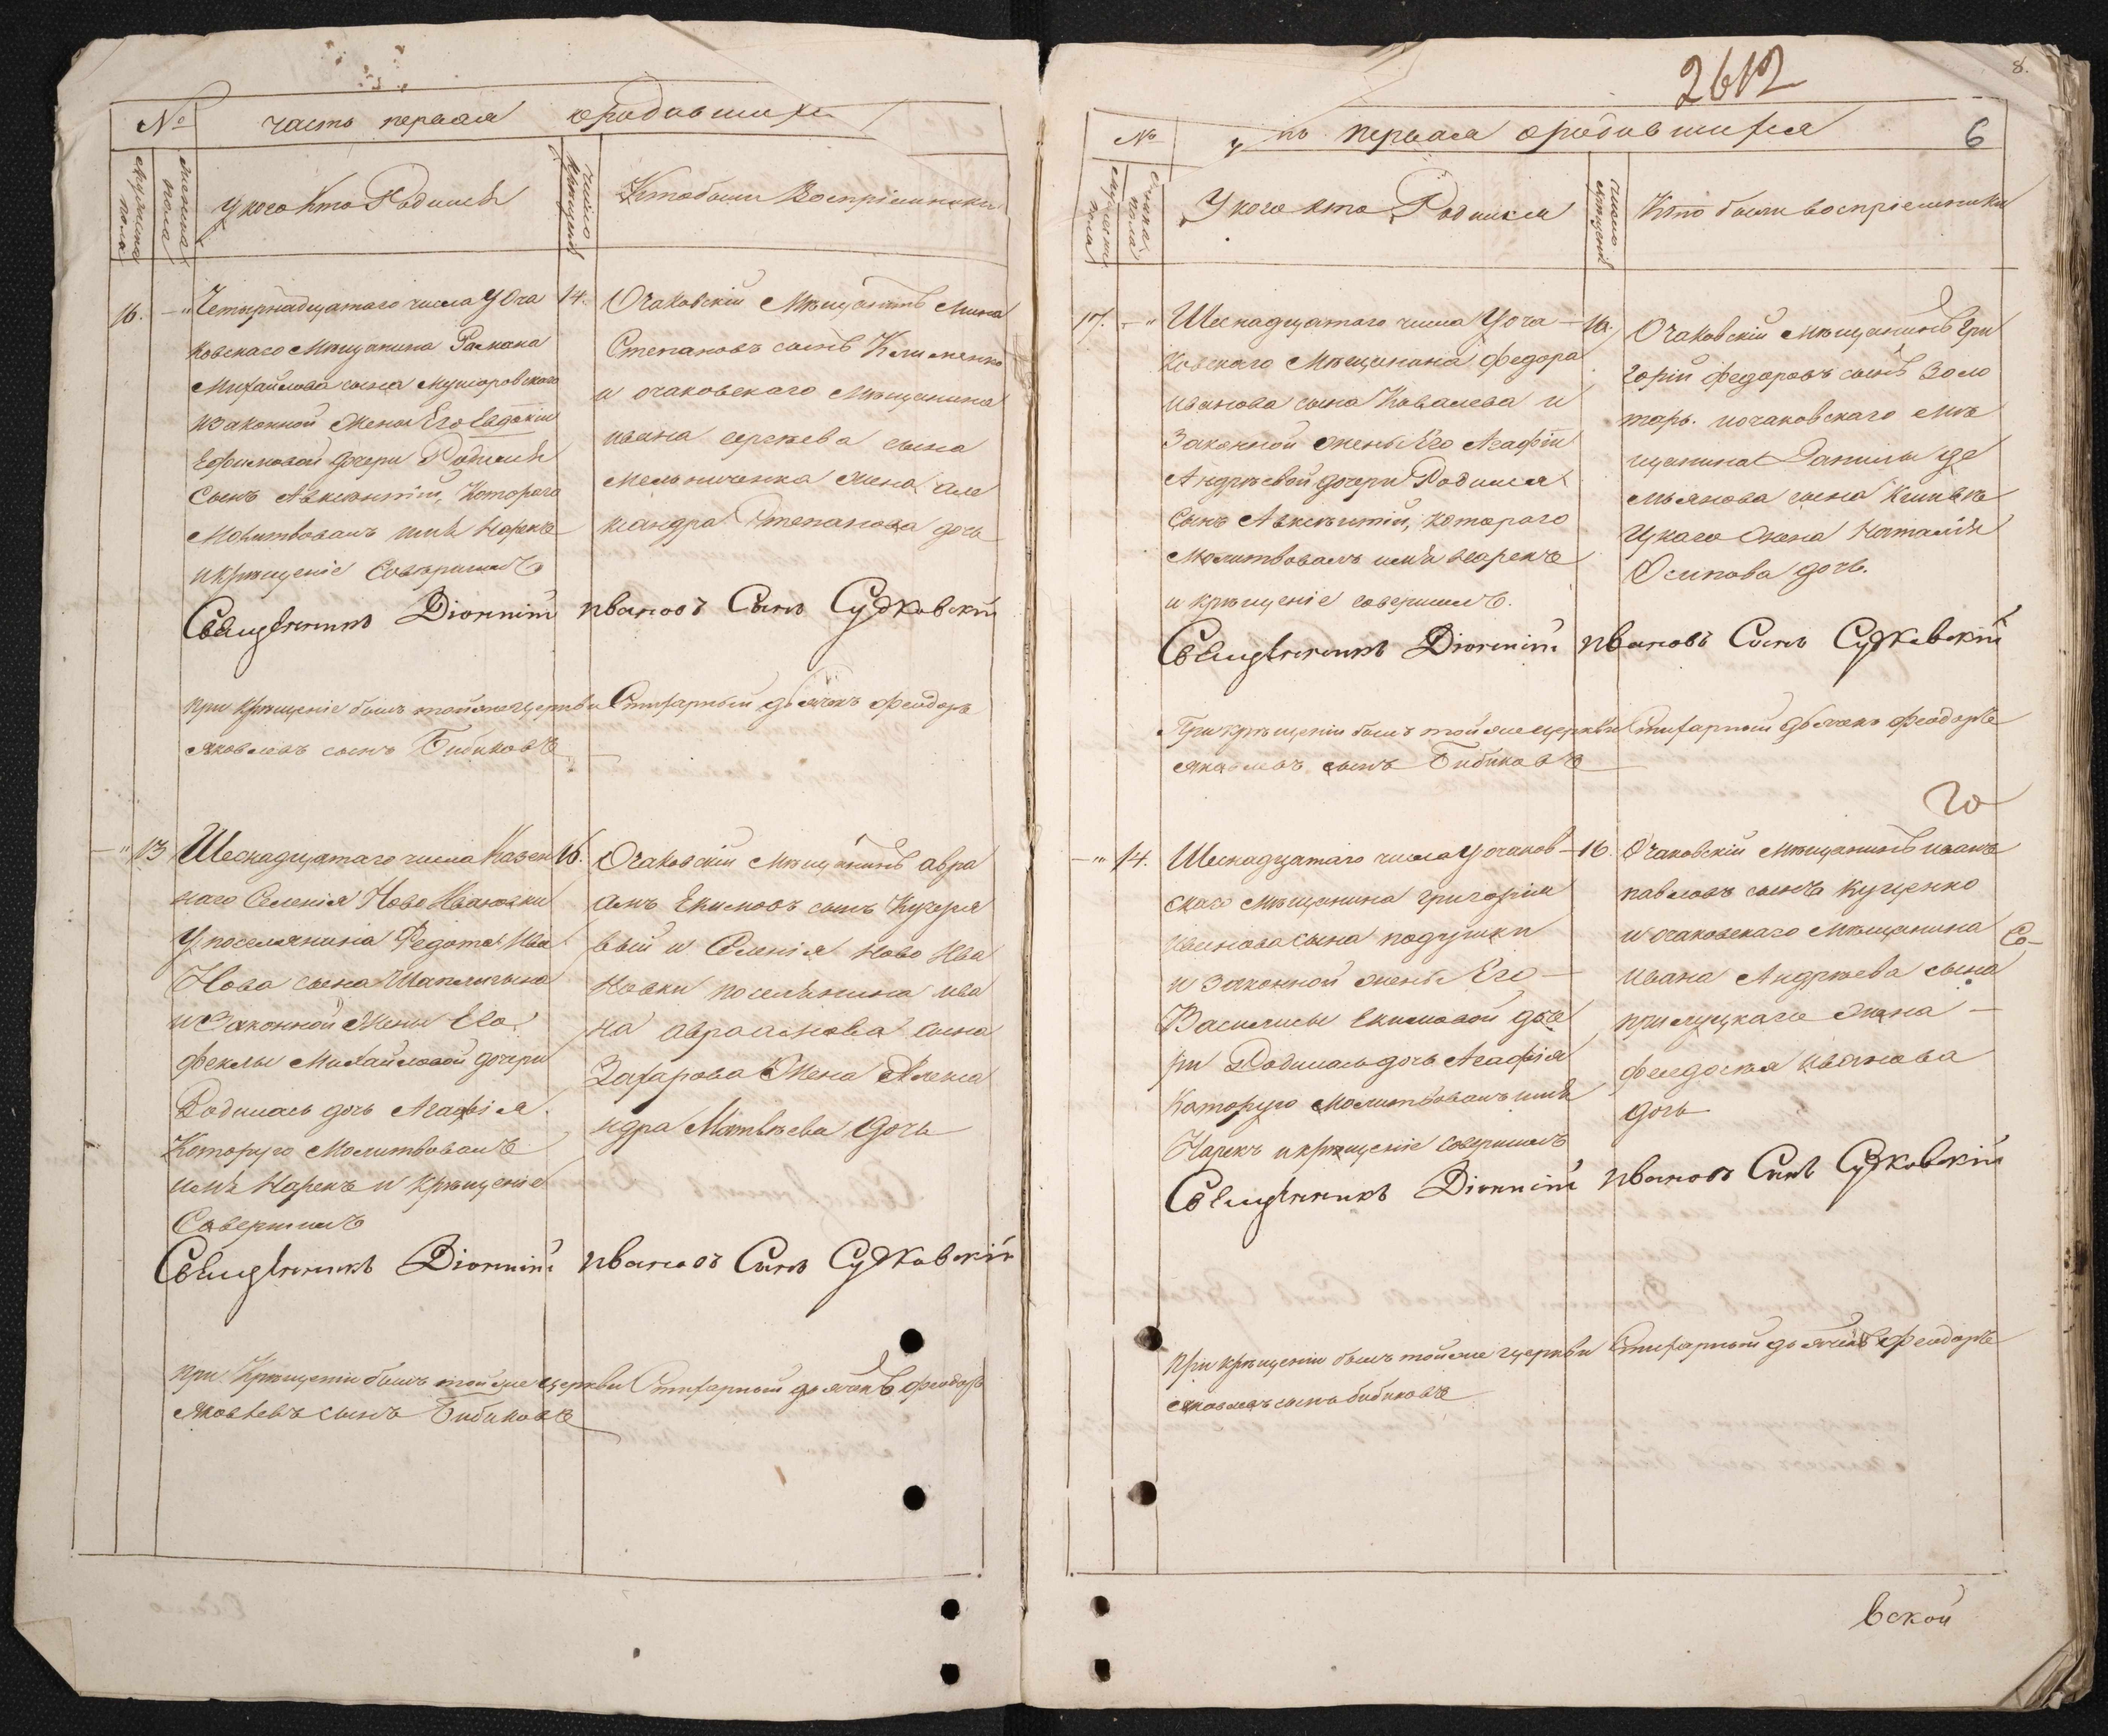 № часть первая ородившихся
Мужеска пола
Женска пола
У кого кто Родился
число крещения
Кто были Воспріемники
16. Четырнадцатаго числа У Оча
ковскаго Мѣщанина Романа
Михайлова сына
изаконной жены Его Евдокіи
Ефимовой дочери Родился
Сынъ Авксентій, Котораго
Молитвовалъ имя Нарекъ
икрещеніе Совершилъ
14. Очаковскій Мѣщанинъ Мина
Степановъ сынъ Клименко
и очаковскаго Мѣщанина
ивана сергеева сына
Мельниченка жена Але
ксандра Степанова дочь
Священникъ Діонисій ивановъ Сынъ Судковскій
при крещеніе былъ тойжецеркви Стихарный дьячекъ Феодоръ
яковлевъ сынъ Бибиковъ
13 Шеснадцатаго числа Казен
наго Селенія Ново Ивановки
У поселянина Федота Ива
Нова сына Шаплыгына
и Законной Жены Его
Феклы Михайловой дочери
Родилась дочь Агафія
Которую Молитвовалъ
имя Нарекъ и Крещеніе
Совершилъ
16. Очаковскій Мѣщанинъ авра
амъ Екимовъ сынъ Кучеря
вый и Селенія Ново Ива
новки поселянина ива
на авраамова сына
Захарова Жена Алекса
ндра Матвѣева Дочь
Священникъ Діонисій ивановъ Сынъ Судковскій
при Крещеніи былъ тойже церкви Стихарный дьячекъ Феодоръ
Яковлевъ сынъ Бибиковъ
2612
8.
6
№ ч ть первая ородившихся
Мужеска пола
Женска пола
У кого кто Родился
число крещенія
Кто были воспріемники
17. Шеснадцатаго числа У оча
ковскаго Мѣщанина Федора
иванова сына Ковалева и
Законной жены Его Агафіи
Андреевой дочери Родился
Сынъ Авксентій, котораго
Молитвовалъ имя нарекъ
и крещеніе совершилъ.
16. Очаковскій Мѣщанинъ Гри
горій федоровъ сынъ Золо
тарь. иочаковскаго мѣ
щанина Данилы де
мьянова сына
жена Наталія
Осипова дочь.
Священникъ Діонисій ивановъ Сынъ Судковскій
При крещеніи былъ тойжецеркви Стихарный дьячекъ Феодоръ
яковлевъ сынъ Бибиковъ
14. Шеснадцатаго числа У очаков
скаго Мѣщанина Григорія
иванова сына подушки
и законной жены Его
Василисы Екимовой доче
ри Родилась дочь Агафія
Которую Молитвовалъ имя
Нарекъ икрещеніе совершилъ
16. Очаковскій Мѣщанинъ иванъ
павловъ сынъ Куценко
и очаковскаго Мѣщанина
ивана Андреева сына
прилуцкаго жена
феодосія иванова
дочь
Священникъ Діонисій ивановъ Сынъ Судковскій
при крещеніи былъ тойже церкви Стихарный дьячекъ Феодоръ
яковлевъ сынъ бибиковъ
вской